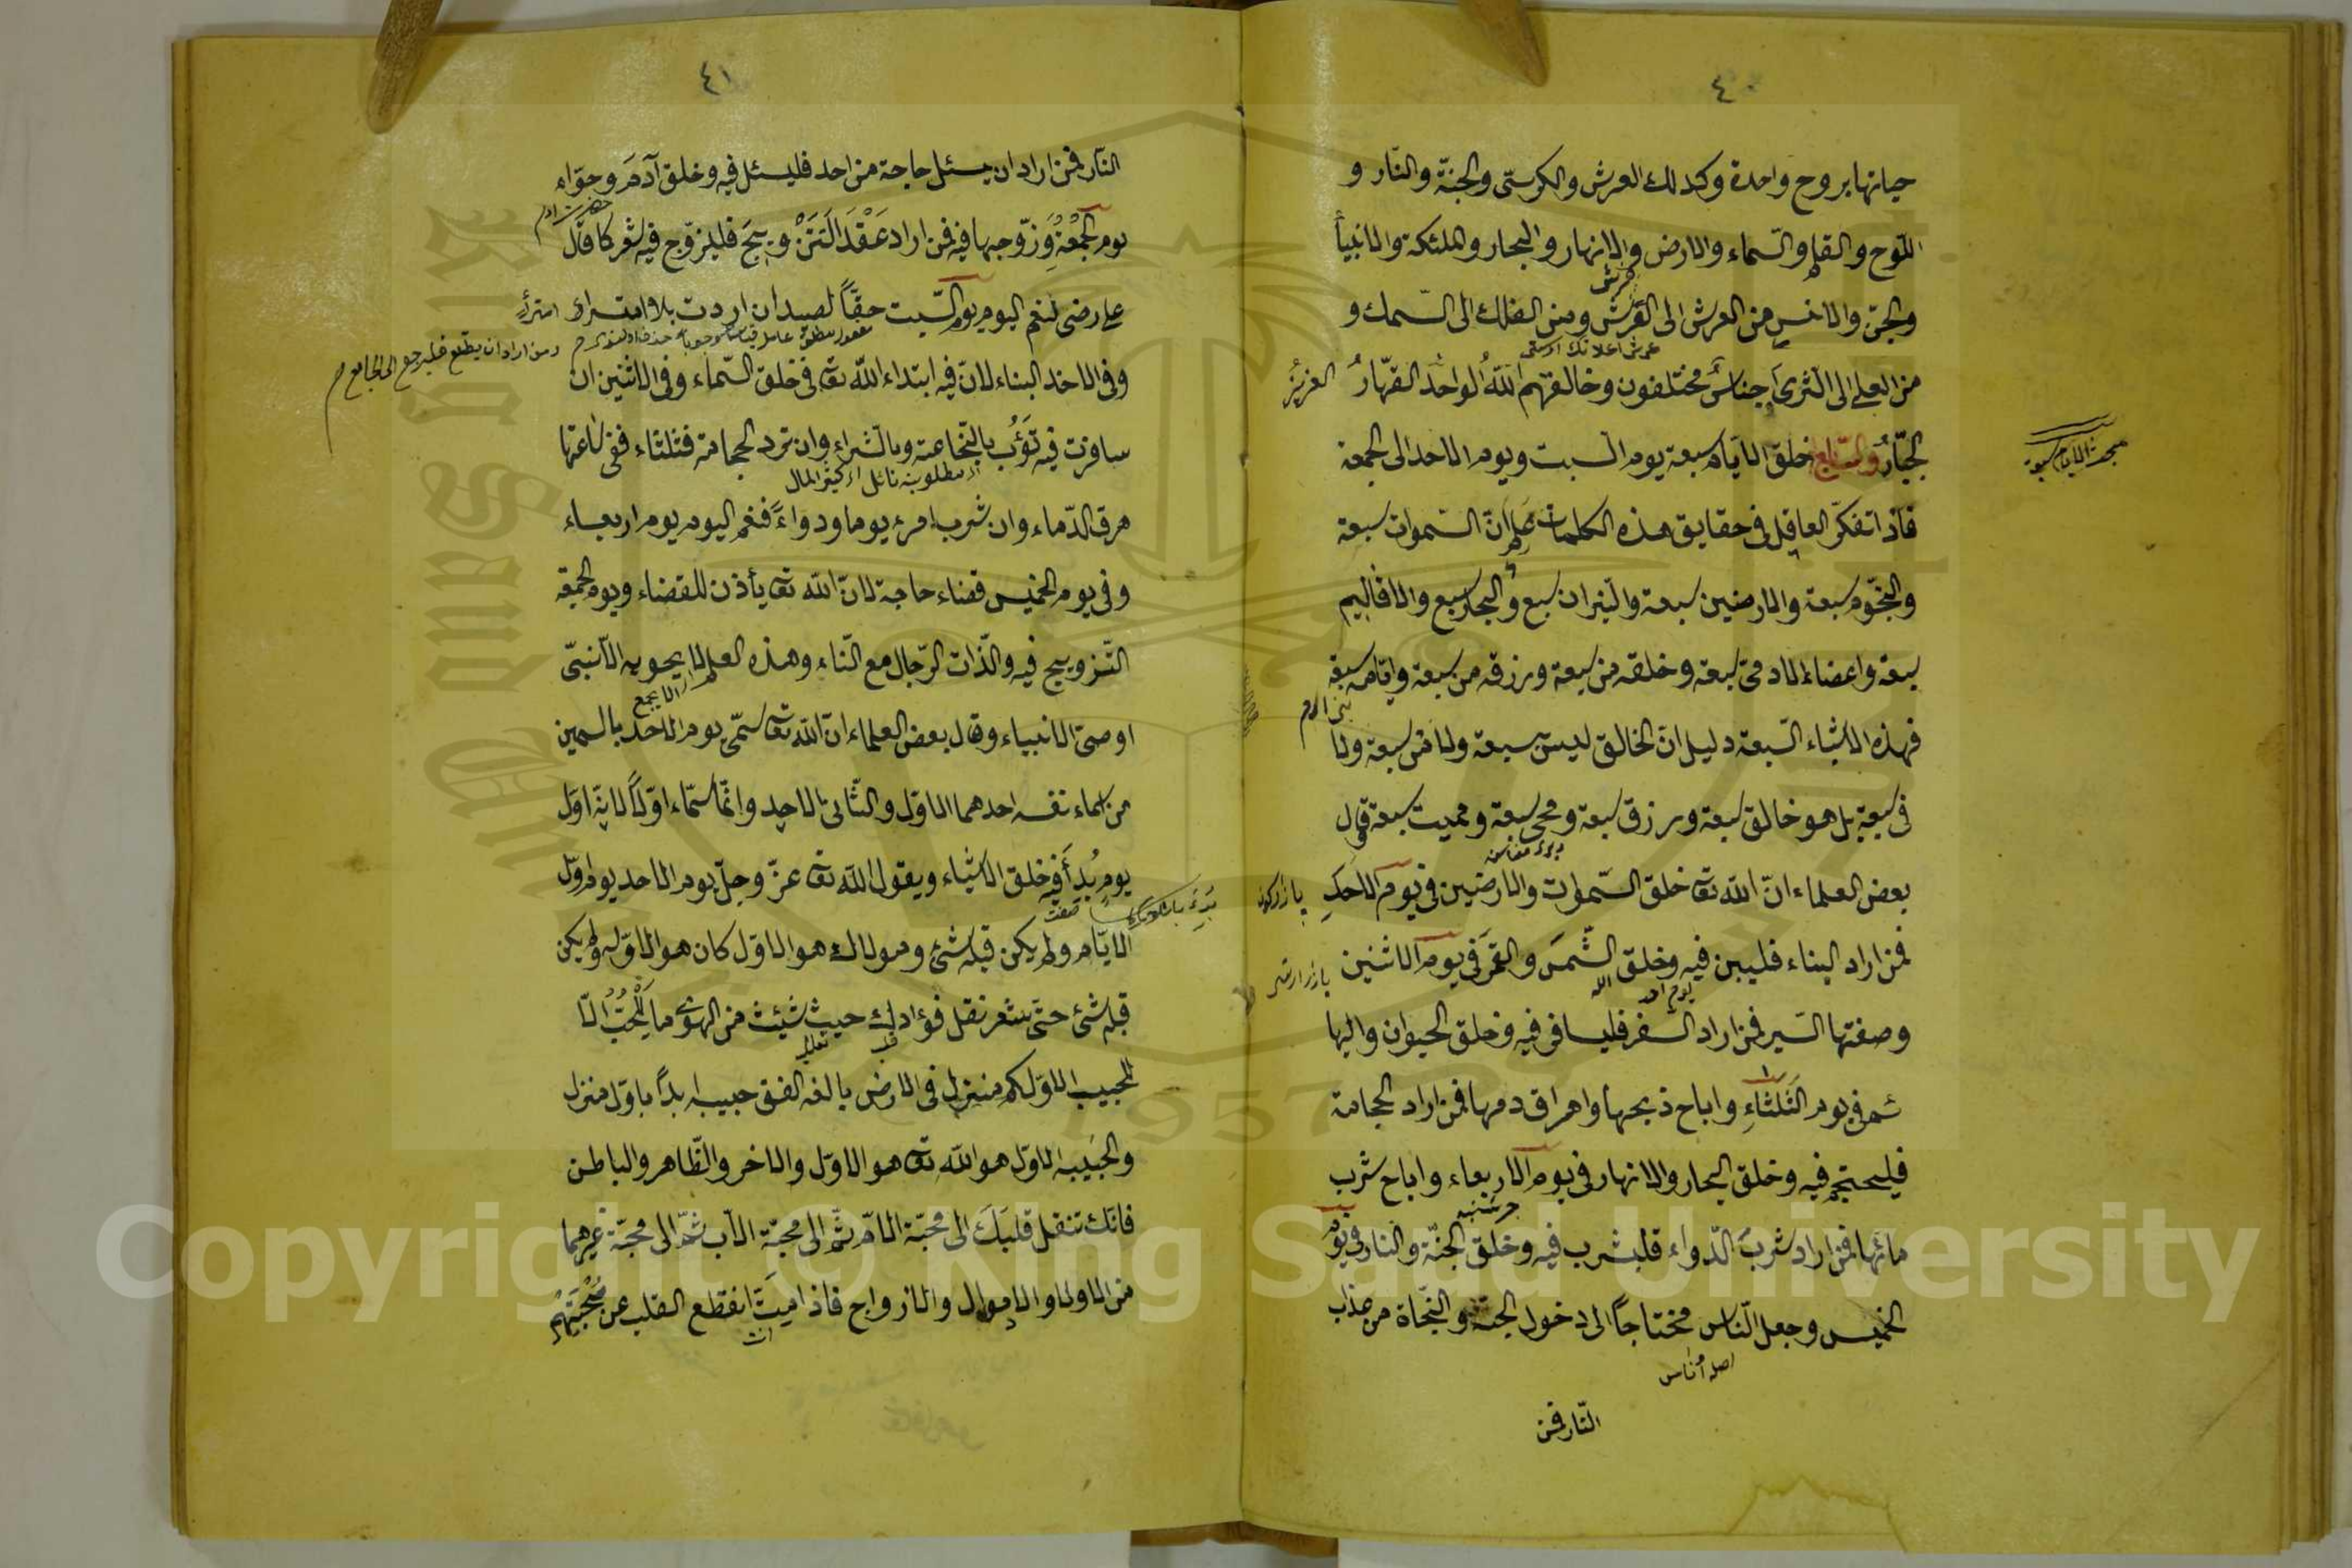 ٤٠
حياتها بروح واحدة وكذلك العرش والكرسىّ والجنّة والنّار و
اللّوح والقلم والسّماء والارض والانهار والبحار والملئكة والانبيأ
والجنّ والانس من العرش الى الفرش ومن الفلك الى السّمك و
من العلى الى الثّرى اجناسٌ مختلفون وخالقهم اللّهُ الواحدُ القهّارُ العزيزُ
الجبّارُ والسّابع خلق الايّام سبعة يوم السّبت ويوم الاحد الى الجمعة
مبحث الايام سبعة
فاذا تفكّر العاقل فى حقايق هذه الكلمات علم انّ السّموات سبعة
والنجّوم سبعة والارضين سبعة والنّيران سبع والبحار سبع والاقاليم
سبعة واعضاء الادمىّ سبعة وخلقه من سبعة ورزقه من سبعة وايّامه سبعة
بنى ادم
فهذه الاشياء السّبعة دليل انّ الخالق ليس سبعة ولا من سبعة ولا
فى سبعة بل هو خالق سبعة ورزق سبعة ومحيى سبعة ومميت سبعة قال
بعض العلماء انّ اللّه تعا خلق السّموات والارضين فى يوم الاحدِ
فمن اراد البناء فليبن فيه وخلق الشّمسَ والقمرَ فى يوم الاثنين
يوم احد الله
وصفتها السّير فمن اراد السّفر فليسافر فيه وخلق الحيوان والبها
ئم فى يوم الثّلثاءِ واباح ذبحها واهراق دمها فمن اراد الحجامة
فليحتجم فيه وخلق البحار والانهار فى يوم الاربعاء واباح شرب
مائها فمن اراد شربَ الدّواء فليشرب فيه وخلق الجنّة والنار فى يوم
الخميس وجعل النّاس محتاجاً الى دخول الجنّة والنّجاة من عذاب
اصله اُناس
النّار فمن
٤١
النّار فمن اراد ان يسئل حاجة من احد فليسئل فيه وخلق آدمَ وحوّاء
يوم الجمُعةِ وَزوّجها فيه فمن اراد عَقْدَ التّزْويجَ فليزوّج فيه شعر كما قال
على رضى لنعم اليوم يوم السّبت حقّاً لصيد ان اردت بلا امتراء
ومن اراد ان يطلع فليرجع الى الجامع م
وفى الاحد البناء لانّ فيه ابتداء اللّه تعا فى خلق السّماء وفى الاثنين ان
سافرت فيه تَؤُب بالنّجاعة وبالثّراء وان ترد الحجامة فثلثاء ففى ساعتها
كثير المال
هرق الدّماء وان شرب امرء يوما دواءً فنعم اليوم يوم اربعاء
وفى يوم الخميس قضاء حاجة لانّ اللّه تعا يأذن للقضاء ويوم الجمعة
التّزويج فيه والذّات الرّجال مع النّساء وهذه العلم لا يحويه الّا نبىّ
او وصىّ الانبياء وقال بعض العلماء انّ اللّه تعا سمّى يوم الاحد باسمين
من اسماء نفسه احدهما الاوّل والثّانى الاحد وانّما سمّاء اوّلاً لانّه اوّل
يوم بُدأ فيه خلق الاشياء ويقول اللّه تعا عزّ وجلّ يوم الاحد يوم اوّل
الايّام ولم يكن قبله شئ ومولاك هو الاوّل كان هو الاوّل ولم يكن
قبله شئ حتى شعر نقل فؤادك حيث شئت من الهوى ما الْحُبُّ الّا
للحبيب الاوّل كم منزل فى الارض يالفه الفتى حبيبه ابداً باوّل منزل
والحبيب الاوّل هو اللّه تعا هو الاوّل والاخر والظّاهر والباطن
فانّك تنقل قلبَكَ الى محبّة الامّ ثمّ الى محبّة الاب ثمّ الى محبّة غيرهما
من الاولاد والاموال والازواج فاذا ميتَ انقطع القلب عن صُحْبَتِهِمْ
انت
Copyright © King Saud University
King Saud University
1957